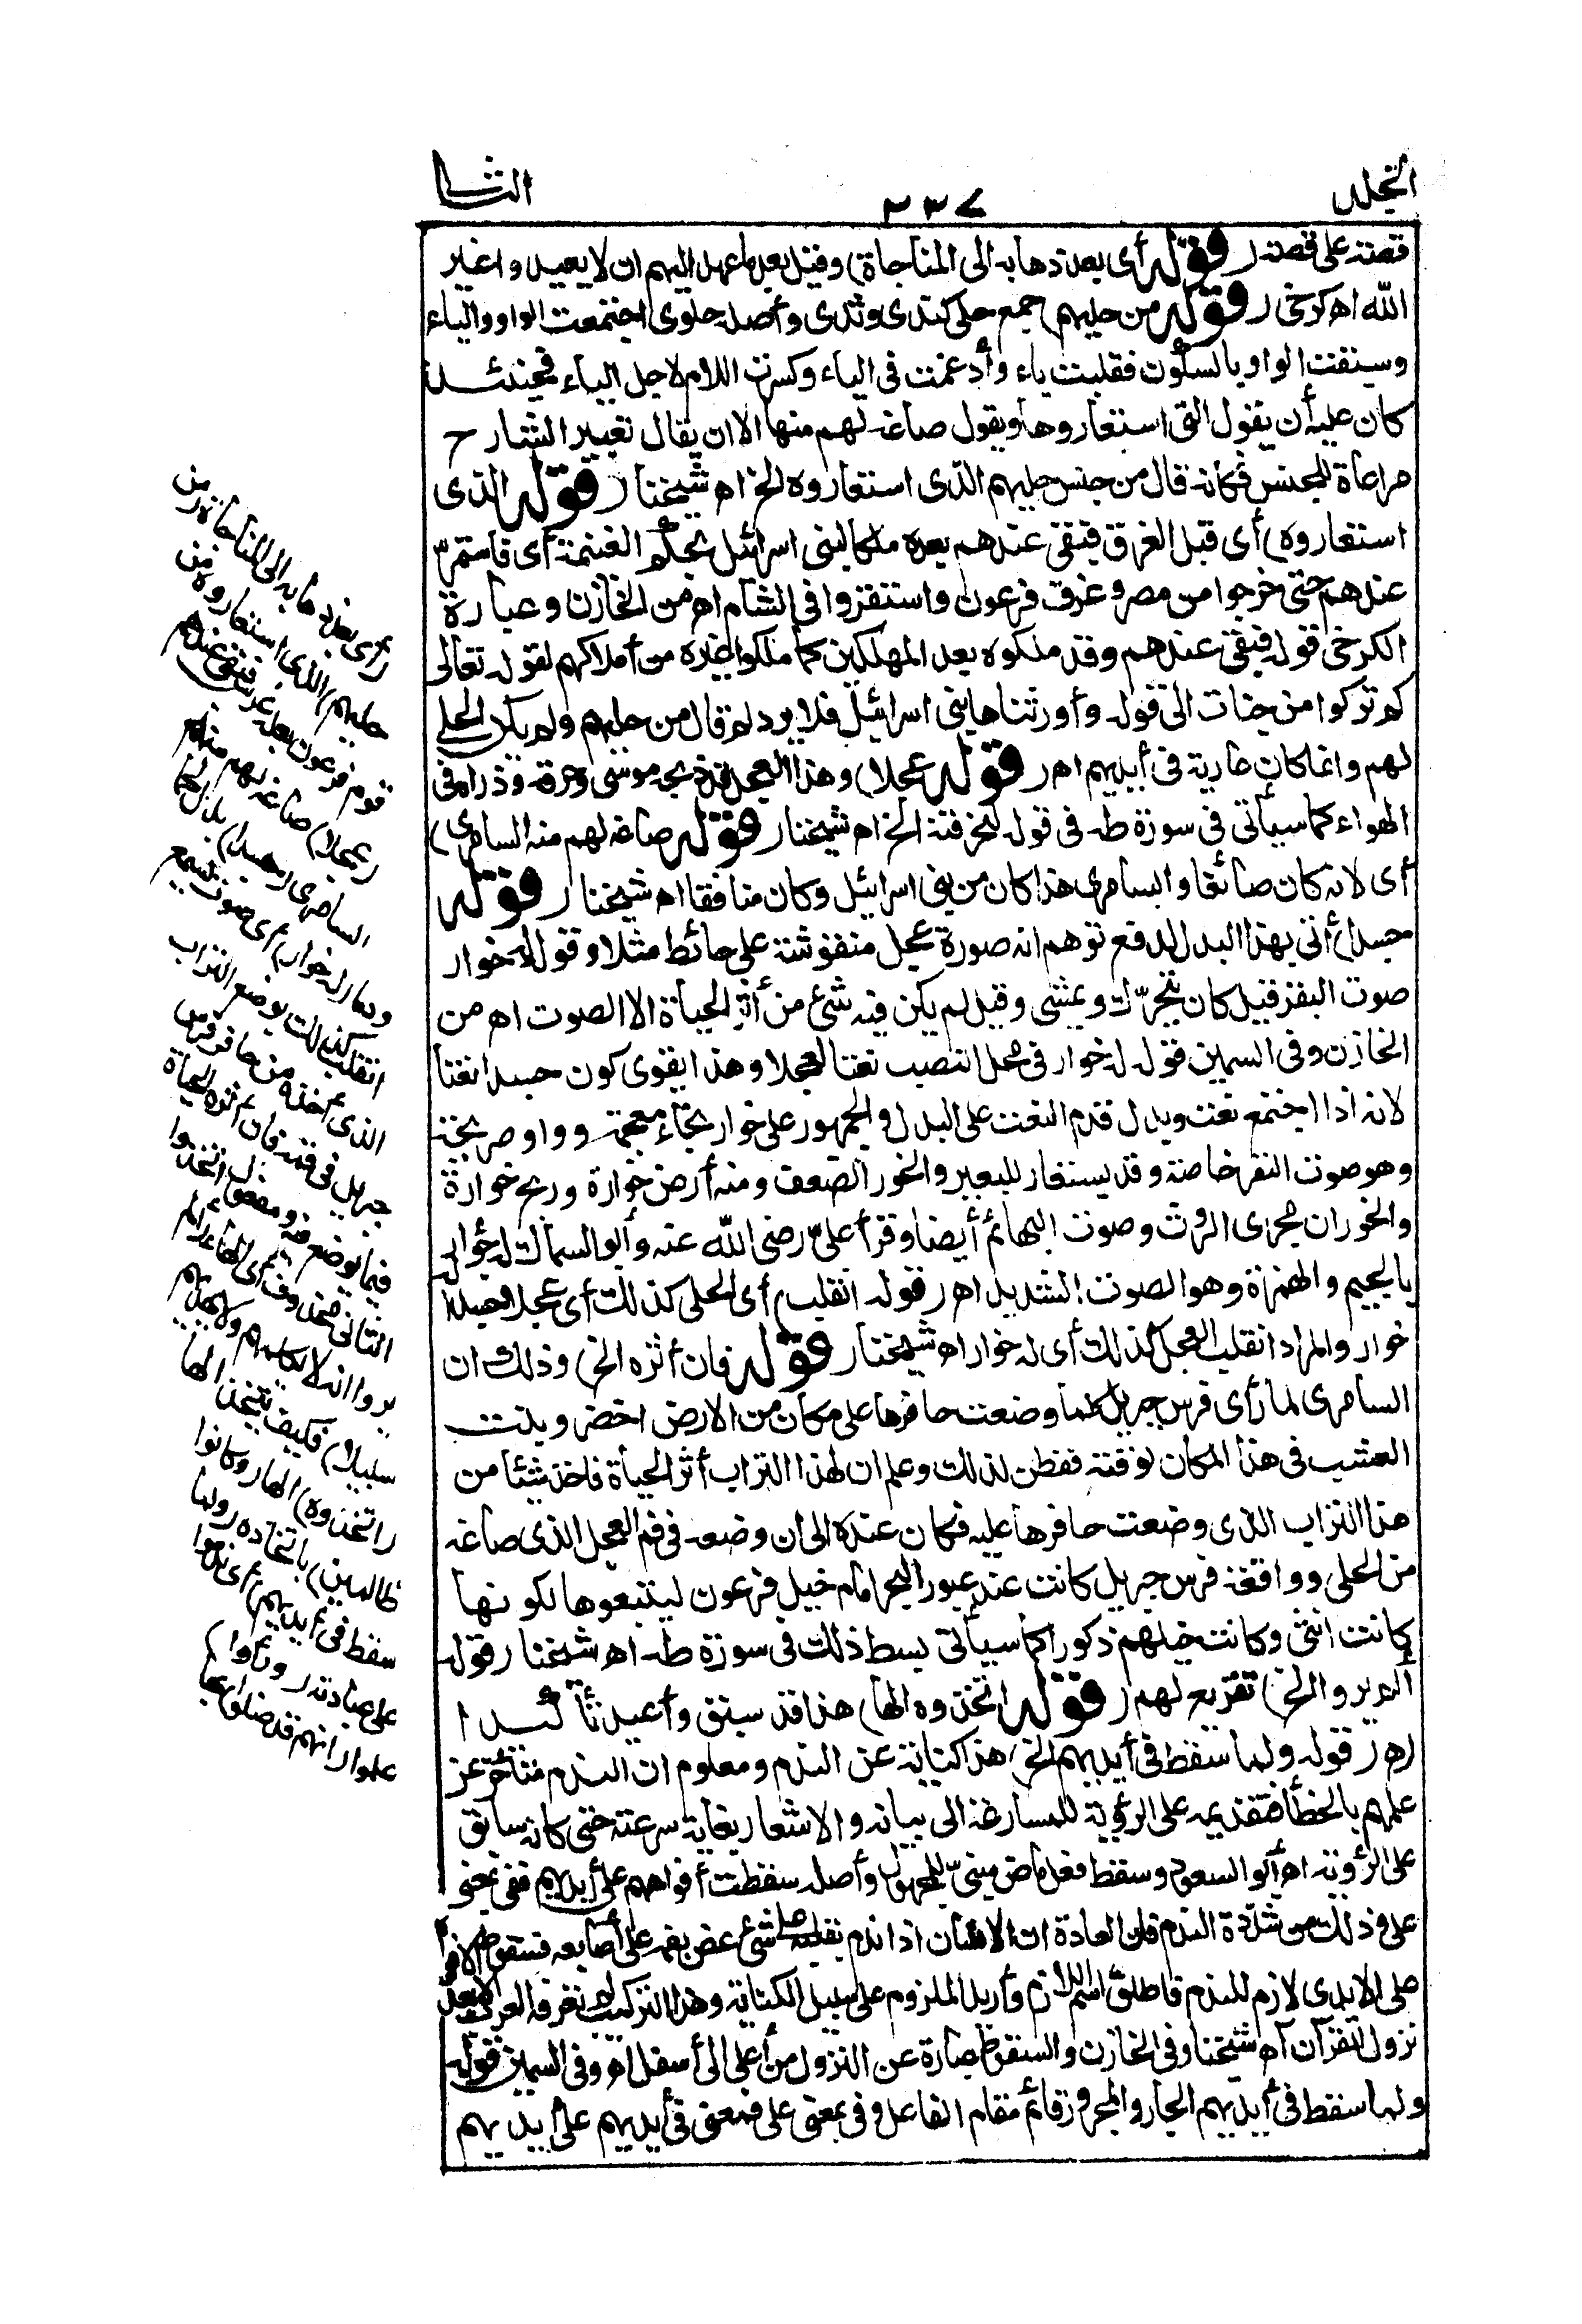 المجلد
٢٣٧
الثا
قصة على قصة ( قوله أى بعد ذهابه الى المناجاة) وقيل بعد ما عهد اليهم ان لا يعبدوا غير
الله اه كرخى ( قوله من حليهم) جمع حلى كثدى وثدى وأصله حلوى اجتمعت الواو والياء
وسبقت الواو بالسكون فقلبت ياء وأدغمت فى الياء وكسرت اللام لاجل الياء فحينئذ
كان عليه أن يقول التى استعاروها ويقول صاغه لهم منها الا ان يقال تعبير الشارح
مراعاة للجنس فكانه قال من جنس حليهم الذى استعاروه الخ اه شيخنا ( قوله الذى
استعاروه) أى قبل الغرق فبقى عندهم بعده ملكا لبنى اسرائيل بحكم الغنيمة أى فاستمر
عندهم حتى خرجوا من مصر وغرق فرعون واستقروا فى الشام اه من الخازن وعبارة
الكرخى قوله فبقى عندهم وقد ملكوه بعد المهلكين كما ملكوا غيره من أملاكهم لقوله تعالى
كم تركوا من جنات الى قوله وأورثناها بنى اسرائيل فلا يرد لم قال من حليهم ولم يكن الحلى
لهم وانما كان عارية فى أيديهم اه ( قوله عجلا) وهذا العجل قد ذبحه موسى وحرقه وذراه فى
الهواء كما سيأتى فى سورة طه فى قوله لنحرقنه الخ اه شيخنا ( قوله صاغه لهم منه السامرى)
أى لانه كان صائغا والسامرى هذا كان من بنى اسرائيل وكان منافقا اه شيخنا ( قوله
جسدا) أتى بهذا البدل لدفع توهم انه صورة عجل منقوشة على حائط مثلا وقوله له خوار
صوت البقر قيل كان يتحرك ويمشى وقيل لم يكن فيه شئ من أثر الحياة الا الصوت اه من
الخازن وفى السمين قوله له خوار فى محل النصب نعتا لعجلا وهذا يقوى كون جسدا نعتا
لانه اذا اجتمع نعت وبدل قدم النعت على البدل والجمهور على خوار بخاء معجمة وواو صريحة
وهو صوت البقر خاصة وقد يستعار للبعير والخور الضعف ومنه أرض خوارة وريح خوارة
والخوران مجرى الروث وصوت البهائم أيضا وقرأ على رضى الله عنه وأبو السمال له جؤار
بالجيم والهمزة وهو الصوت الشديد اه ( قوله انقلب) أى الحلى كذلك أى عجلا جسدا له
خوار والمراد انقلب العجل كذلك أى له خوار اه شيخنا ( قوله فان أثره الخ) وذلك ان
السامرى لما رأى فرس جبريل كلما وضعت حافرها على مكان من الارض اخضر وينبت
العشب فى هذا المكان لوقته ففطن لذلك وعلم ان لهذا التراب أثر الحياة فاخذ شيئا من
هذا التراب الذى وضعت حافرها عليه فكان عنده الى ان وضعه فى فم العجل الذى صاغه
من الحلى وواقعة فرس جبريل كانت عند عبور البحر امام خيل فرعون ليتبعوها لكونها
كانت انثى وكانت خيلهم ذكورا كما سيأتى بسط ذلك فى سورة طه اه شيخنا ( قوله
ألم يروا الخ) تقريع لهم ( قوله اتخذوه الها) هذا قد سبق وأعيد تأكيدا
اه ( قوله ولما سقط فى أيديهم الخ) هذا كناية عن الندم ومعلوم ان الندم متأخر عن
علمهم بالخطأ فتقديمه على الرؤية للمسارعة الى بيانه والاشعار بغاية سرعته حتى كانه سابق
على الرؤية اه أبو السعود وسقط فعل ماض مبنى للمجهول وأصله سقطت أفواههم على أيديهم ففى بمعنى
على وذلك من شدة الندم فان العادة ان الانسان اذا ندم بقلبه على شئ عض بفمه على أصابعه فسقوط الافواه
على الايدى لازم للندم فاطلق اسم اللازم وأريد الملزوم على سبيل الكناية وهذا التركيب لم تعرفه العرب الا بعد
نزول القرآن اه شيخنا وفى الخازن والسقوط عبارة عن النزول من أعلى الى أسفل اه وفى السمين قوله
ولما سقط فى أيديهم الجار والمجرور قائم مقام الفاعل وفى بمعنى على فمعنى فى أيديهم على أيديهم
(أى بعد ذهابه الى المناجاة (من
حليهم) الذى استعاروه من
قوم فرعون بعلة عرس فبقى عندهم
(عجلا) صاغه لهم منه
السامرى (جسدا) بدل لحما
ودما (له خوار) أى صوت يسمع
انقلب كذلك بوضع التراب
الذى أخذه من حافر فرس
جبريل فى فمه فان أثره الحياة
فيما يوضع فيه ومفعول اتخذوا
الثانى محذوف أى الها (ألم
يروا انه لا يكلمهم ولا يهديهم
سبيلا) فكيف يتخذ الها
(اتخذوه) الها (وكانوا
ظالمين) باتخاذه (ولما
سقط فى أيديهم) أى ندموا
على عبادته (ورأوا)
علموا (انهم قد ضلوا) بها